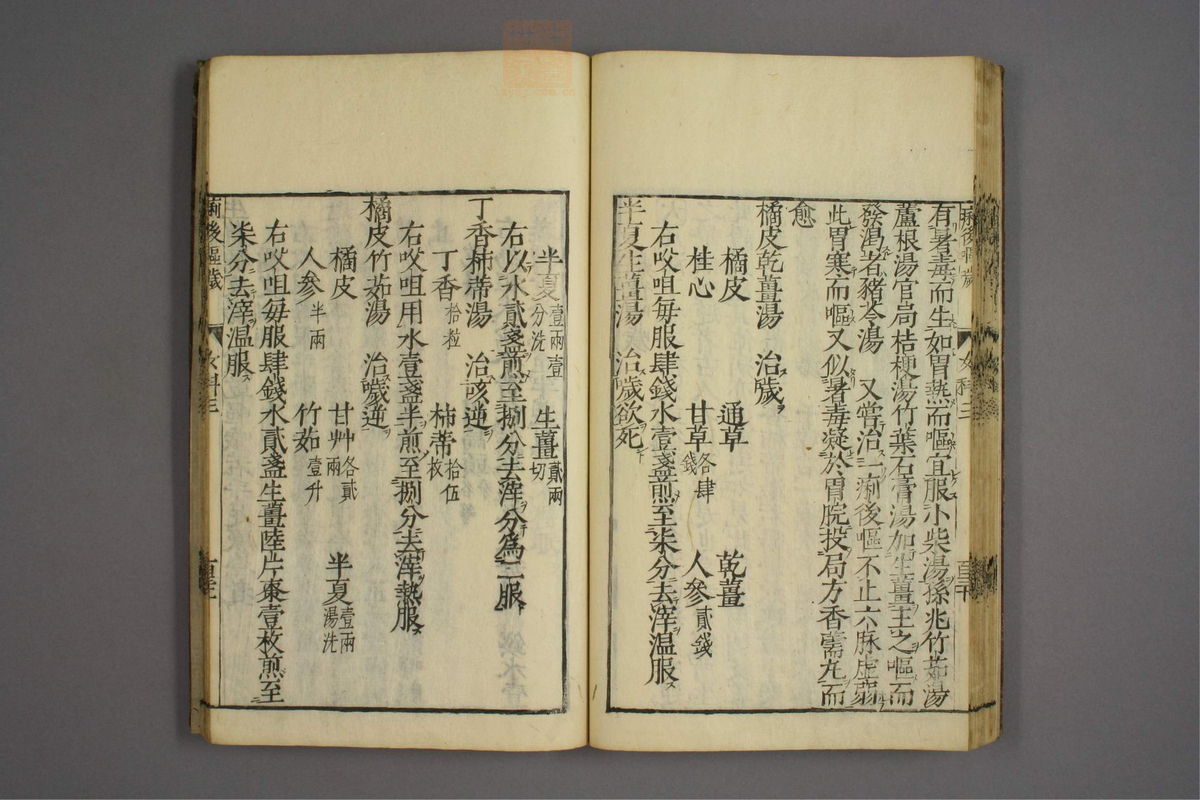 有暑毒而生如胃熱而嘔宜服小柴湯孫兆竹茹湯
蘆根湯官局桔梗湯竹葉石膏湯加生薑主之嘔而
發渴者豬苓湯　又嘗治一痢後嘔不止六脉虛弱
此胃寒而嘔又似暑毒凝於胃脘投局方香薷丸而
愈
橘皮乾薑湯　治噦
橘皮　通草　乾薑
桂心　甘草各肆錢　人參貳錢
右㕮咀每服肆錢水壹盞煎至柒分去滓温服
半夏生薑湯　治噦欲死
半夏壹兩壹分洗　生薑貳兩切
右以水貳盞煎至捌分去滓分爲二服
丁香柿蒂湯　治咳逆
丁香拾粒　柿蒂拾伍枚
右㕮咀用水壹盞半煎至捌分去滓熱服
橘皮竹茹湯　治噦逆
橘皮　甘艸各貳兩　半夏壹兩湯洗
人參半兩　竹茹壹升
右㕮咀每服肆錢水貳盞生薑陸片棗壹枚煎至
柒分去滓温服
痢後嘔噦　女科三